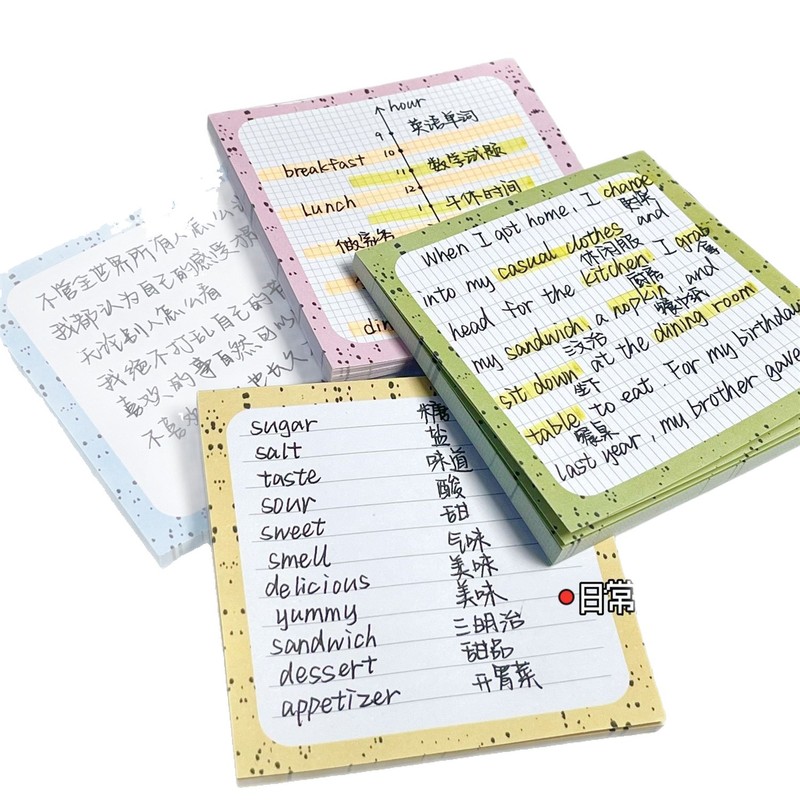 hour
9 英语单词
breakfast 10
11 数学试题
Lunch 12
1 午休时间
做家务
din
不管全世界所有人怎么
我都认为自己的感受
无论别人怎么看
我绝不打乱自己的节
喜欢的事自然可以
不喜欢
也长久
When I got home, I change
换掉
into my casual clothes and
休闲服
head for the kitchen I grab
厨房
my sandwich a napkin, and
三文治 餐巾纸
sit down at the dining room
坐下
table to eat. For my birthday
餐桌
last year, my brother gave
sugar 糖
salt 盐
taste 味道
sour 酸
sweet 甜
smell 气味
delicious 美味
yummy 美味
sandwich 三明治
dessert 甜品
appetizer 开胃菜
日常